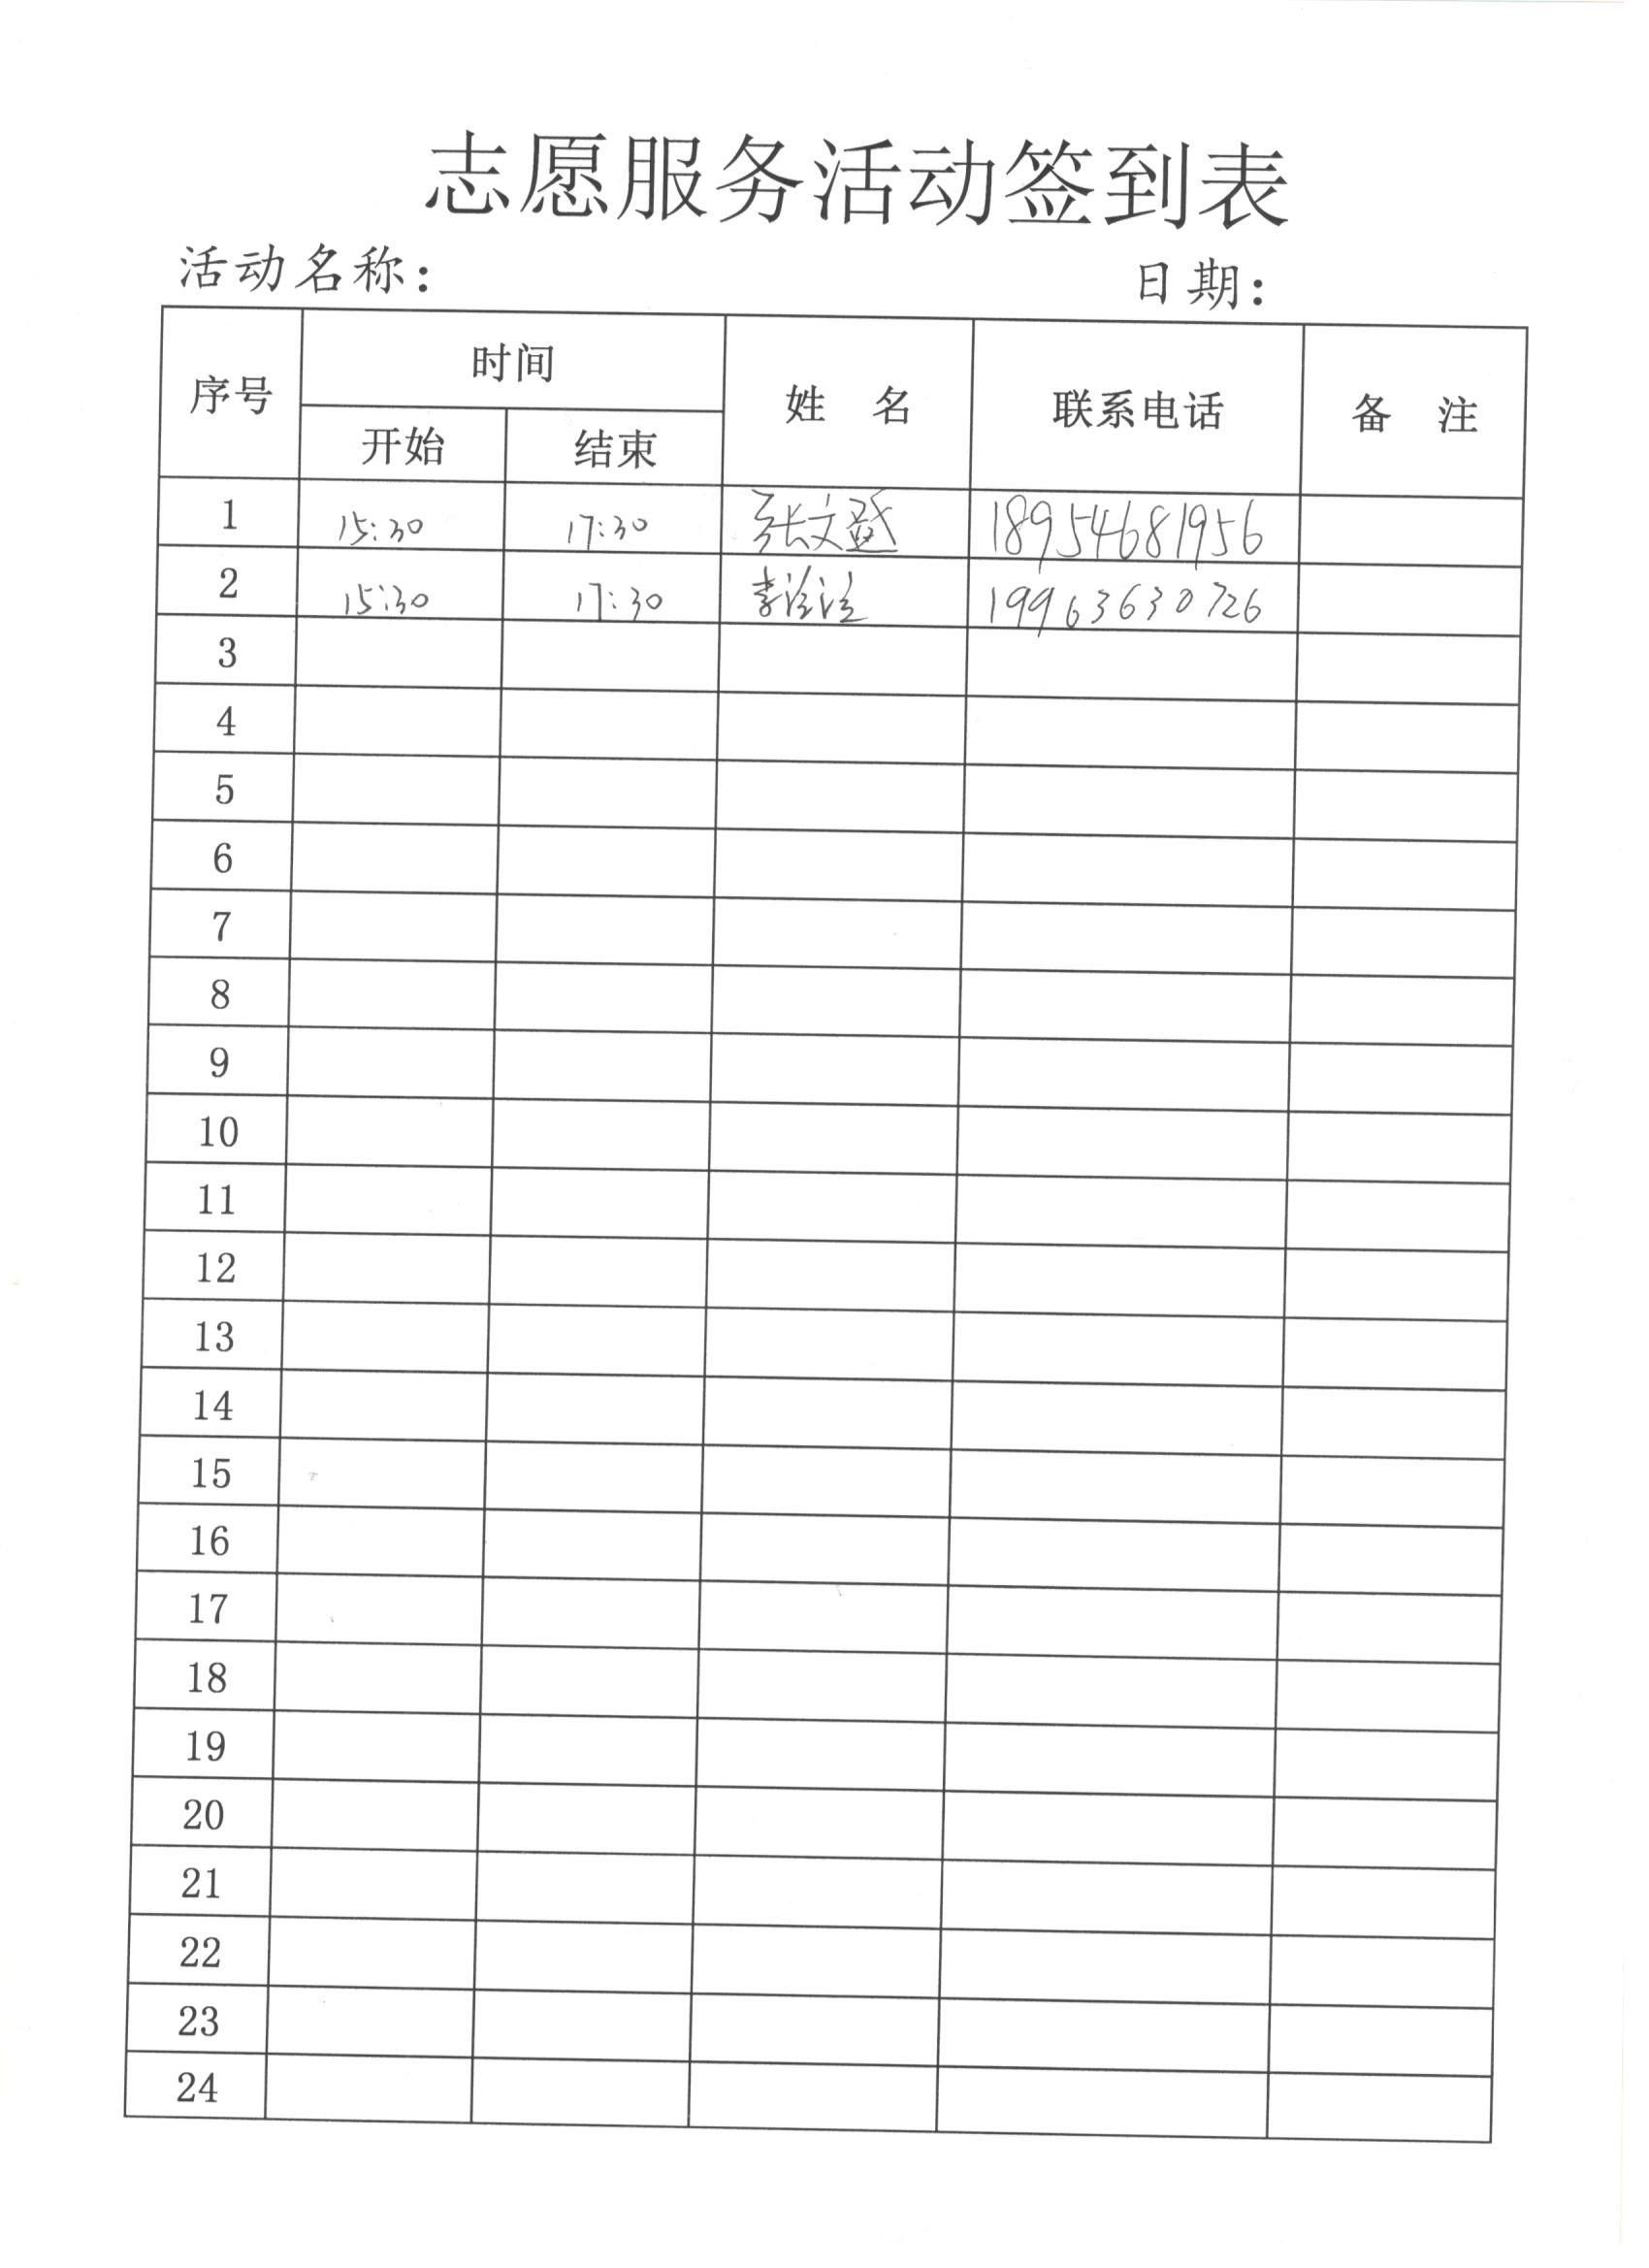 志愿服务活动签到表
活动名称： 日期：
序号 时间 姓 名 联系电话 备 注
开始 结束
1 15:30 17:30 张文 18954681956
2 15:30 17:30 李 19963630726
3
4
5
6
7
8
9
10
11
12
13
14
15
16
17
18
19
20
21
22
23
24